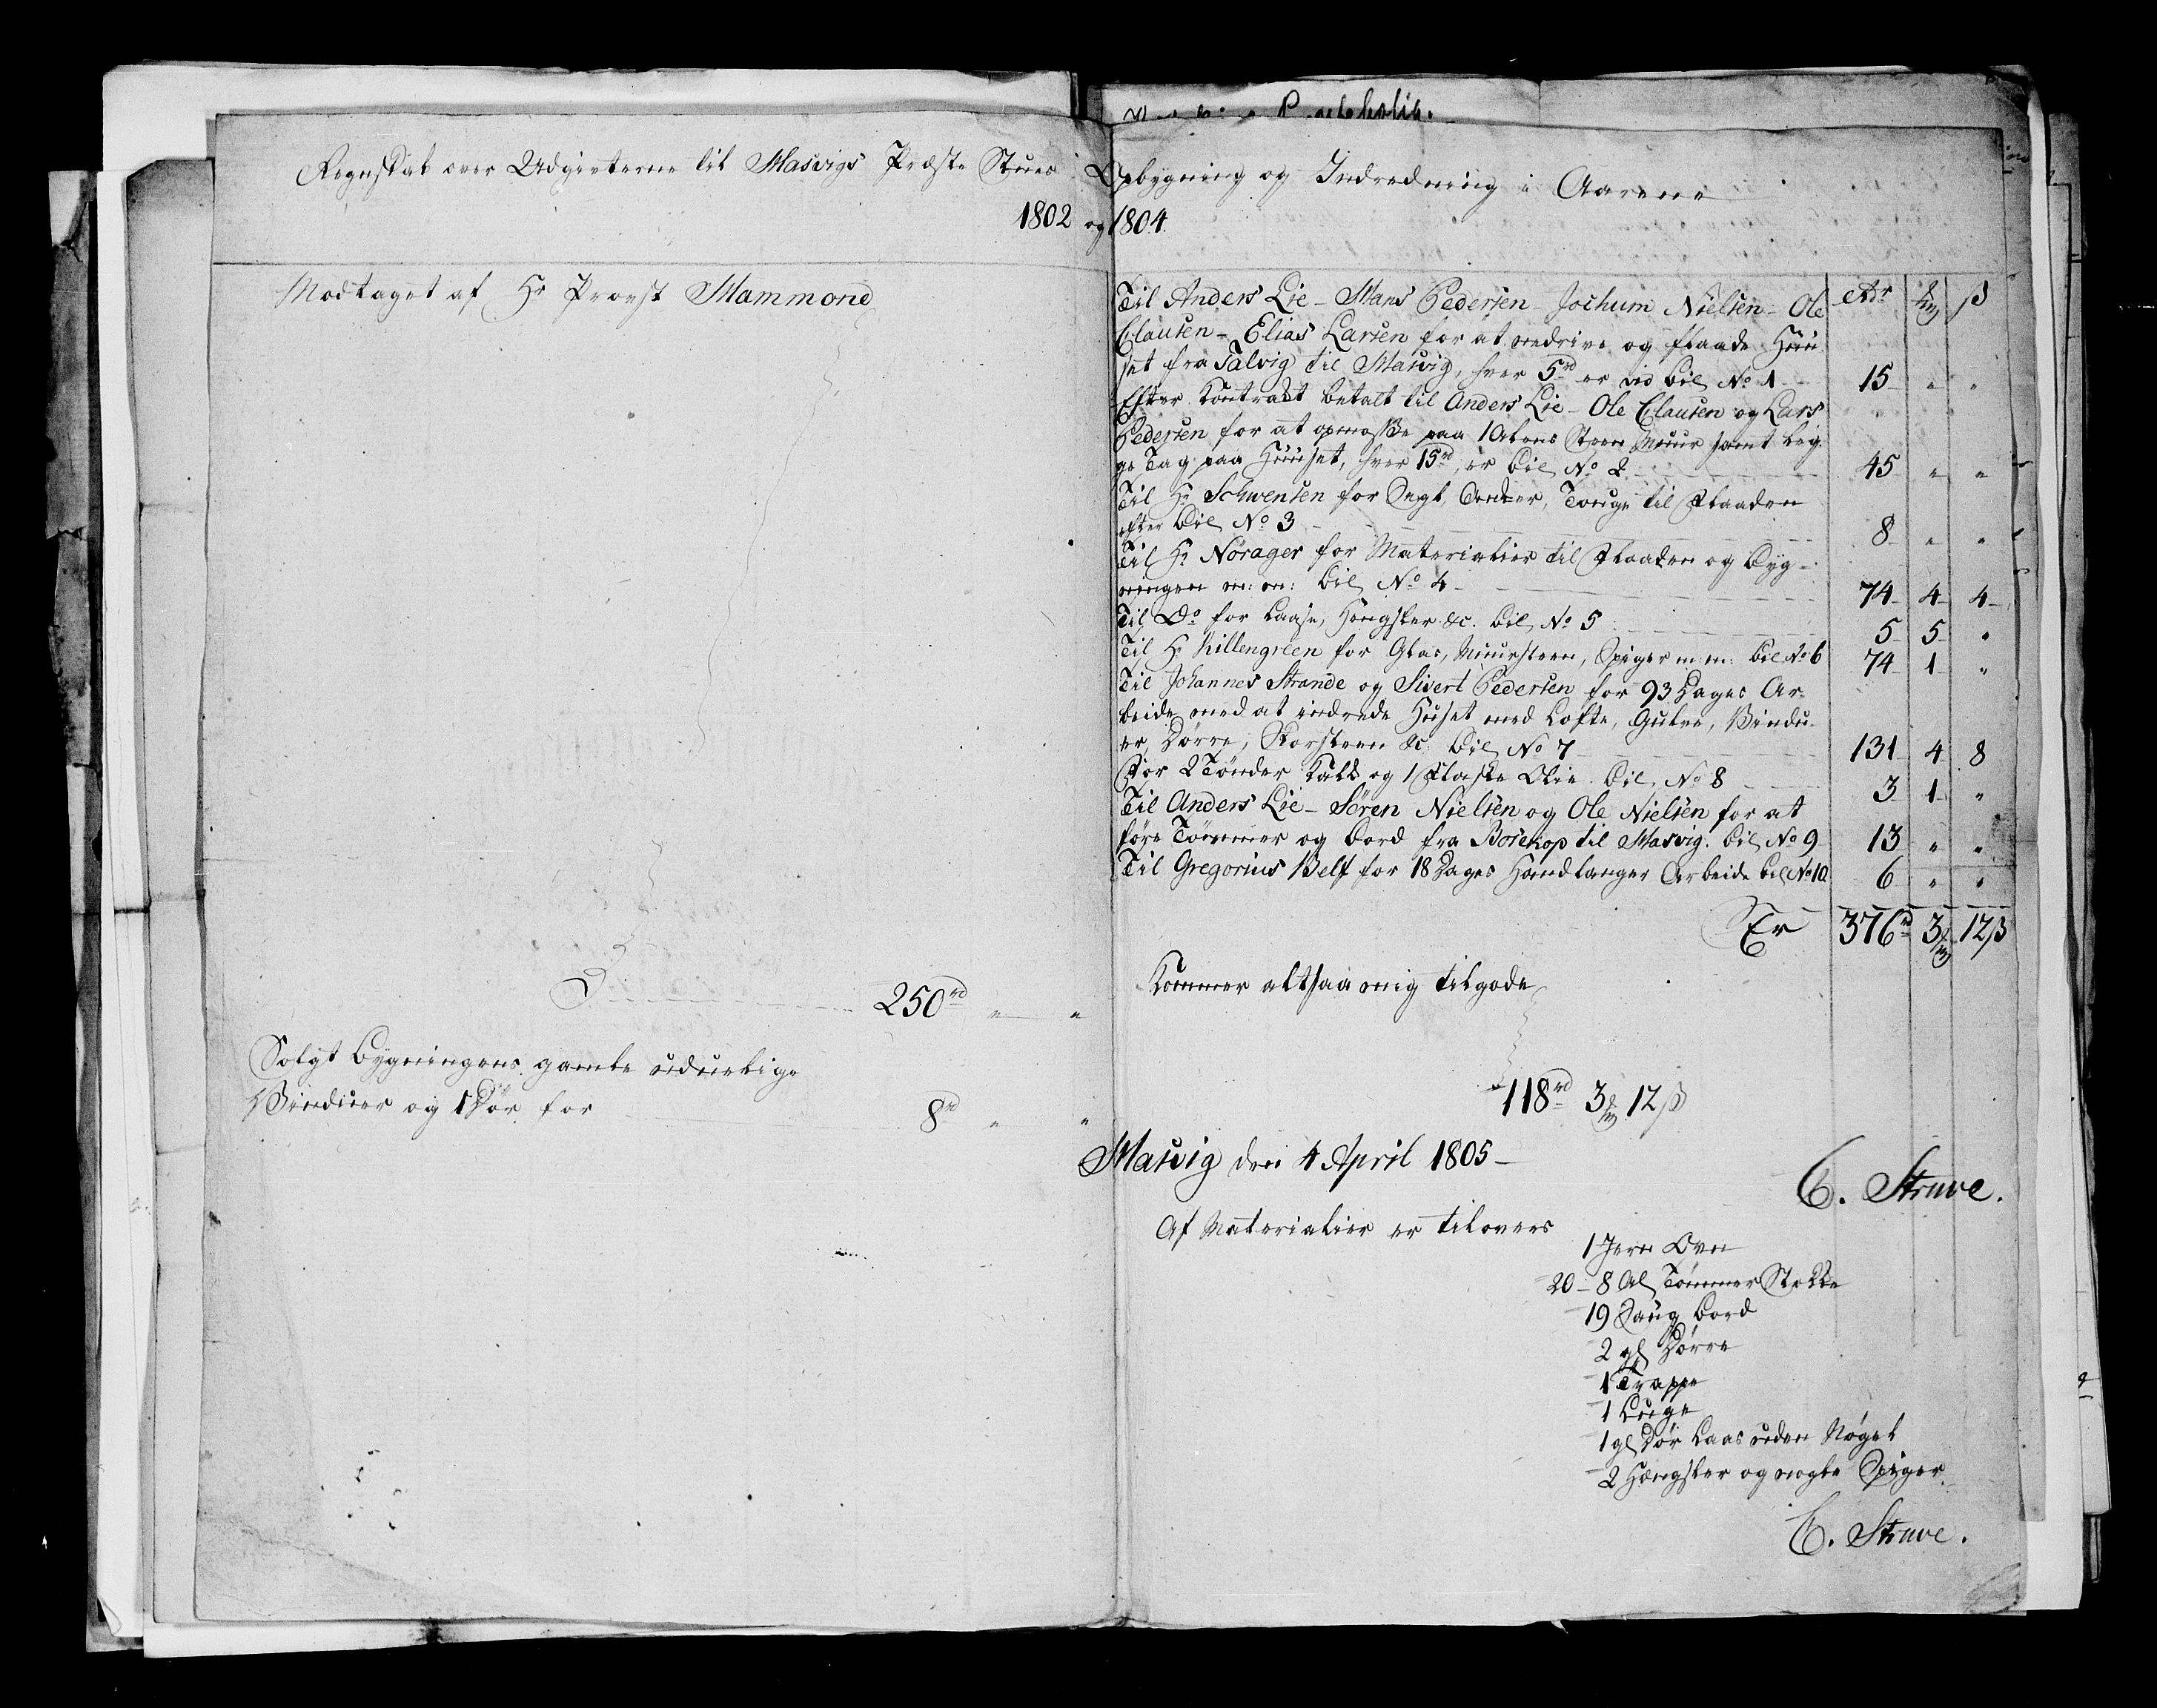 Regnskab over Udgivterne til Masvigs Præste Stues Opbygning og Indredning i Aarene
1802 og 1804.
Modtaget af Hr Provst Hammond
250rd " "
Solgt Bygningens gamle uduelige
Vinduer og 1 Dør for 8rd " "
Til Anders Lie - Hans Pedersen - Jochum Nielsen - Ole
Clausen - Elias Larsen for at nedrive og flaade Huu
set fra Talvig til Masvig, hver 5rd er vid Bil No 1 15 " "
Efter Kontrakt betalt til Anders Lie - Ole Clausen og Lars
Pedersen for at opmoske paa 1 Alens Steen Muur samt læg
ge Tag paa Huuset, hver 15rd, er Bil No 2 45 " "
Til Hr Schwensen for Segl, Anker, Touge til Flaaden
efter Bil No 3 8 " "
Til Hr Nørager for Materialier til Flaaden og Byg-
ningen m: m: Bil No 4 74 4 4
Til Do for Laase, Hængsler &c. Bil No 5 5 5 "
Til Hr Killengreen for Glas, Muursteen, Spiger m: m: Bil No 6 74 1 "
Til Johannes Strande og Sivert Pedersen for 93 Dages Ar-
beide med at indrede Huset med Lofte, Gulve, Vindu-
er, Dørre, Skorsteen &c. Bil No 7 131 4 8
For 2 Tønder Kalk og 1 Flaske Olie Bil. No 8 3 1 "
Til Anders Lie - Søren Nielsen og Ole Nielsen for at
føre Tømmer og Bord fra Bosekop til Masvig. Bil No 9 13 " "
Til Gregorius Belf for 18 Dages Handlanger Arbeide Bil No 10 6 " "
Er 376rd 3 12 ß
Kommer altsaa mig tilgode
118rd 3 12 ß
Masvig den 4 April 1805
C. Struve.
Af Materialier er tilovers
1 Jern Ovn
20 - 8 Al Tømmer Stokke
19 Saug Bord
2 gl Dørre
1 Trappe
1 Luge
1 gl Dør Laas uden Nøgel
2 Hængsler og nogle Spiger
C. Struve.